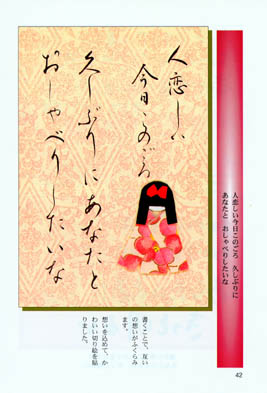 人恋しい
今日このごろ
久しぶりにあなたと
おしゃべりしたいな
人恋しい今日このごろ　久しぶりに
あなたと　おしゃべりしたいな
書くことで、互い
の想いがふくらみ
ます。
想いを込めて、か
わいい切り絵を貼
りました。
42